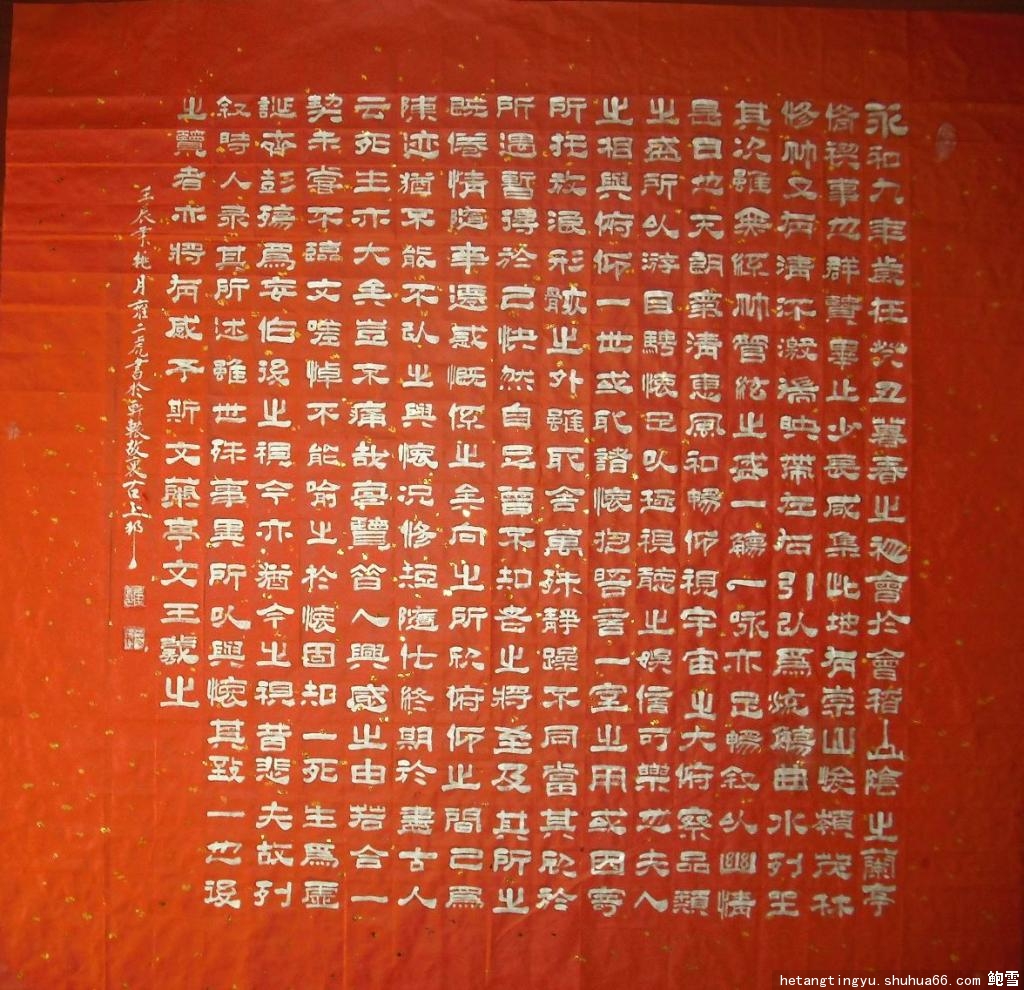 永和九年歲在癸丑暮春之初會於會稽山陰之蘭亭
脩禊事也群賢畢至少長咸集此地有崇山峻領茂林
修竹又有清流激湍映帶左右引以爲流觴曲水列坐
其次雖無絲竹管絃之盛一觴一詠亦足暢叙以幽情
是日也天朗氣清惠風和暢仰視宇宙之大俯察品類
之盛所以游目騁懷足以極視聽之娛信可樂也夫人
之相與俯仰一世或取諸懷抱晤言一室之用或因寄
所托放浪形骸之外雖取舍萬殊靜躁不同當其欣於
所遇暫得於己快然自足曾不知老之將至及其所之
既倦情隨事遷感慨係之矣向之所欣俯仰之間已爲
陳迹猶不能不以之興懷況修短隨化終期於盡古人
云死生亦大矣豈不痛哉每覽昔人興感之由若合一
契未嘗不臨文嗟悼不能喻之於懷固知一死生爲虛
誕齊彭殤爲妄作後之視今亦猶今之視昔悲夫故列
叙時人录其所述雖世殊事異所以興懷其致一也後
之覽者亦將有感予斯文蘭亭文王羲之
壬辰年桃月雍二虎書於軒轅故里古上邽
hetangtingyu.shuhua66.com 鲍雪